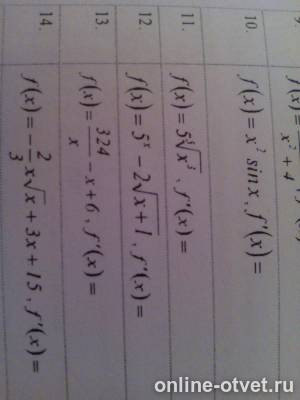 10. f(x) = x² sin x, f'(x) =
11. f(x) = 5⁵√x³, f'(x) =
12. f(x) = 5ˣ − 2√x+1, f'(x) =
13. f(x) = 324/x − x + 6, f'(x) =
14. f(x) = −2/3 x√x + 3x + 15, f'(x) =
online-otvet.ru